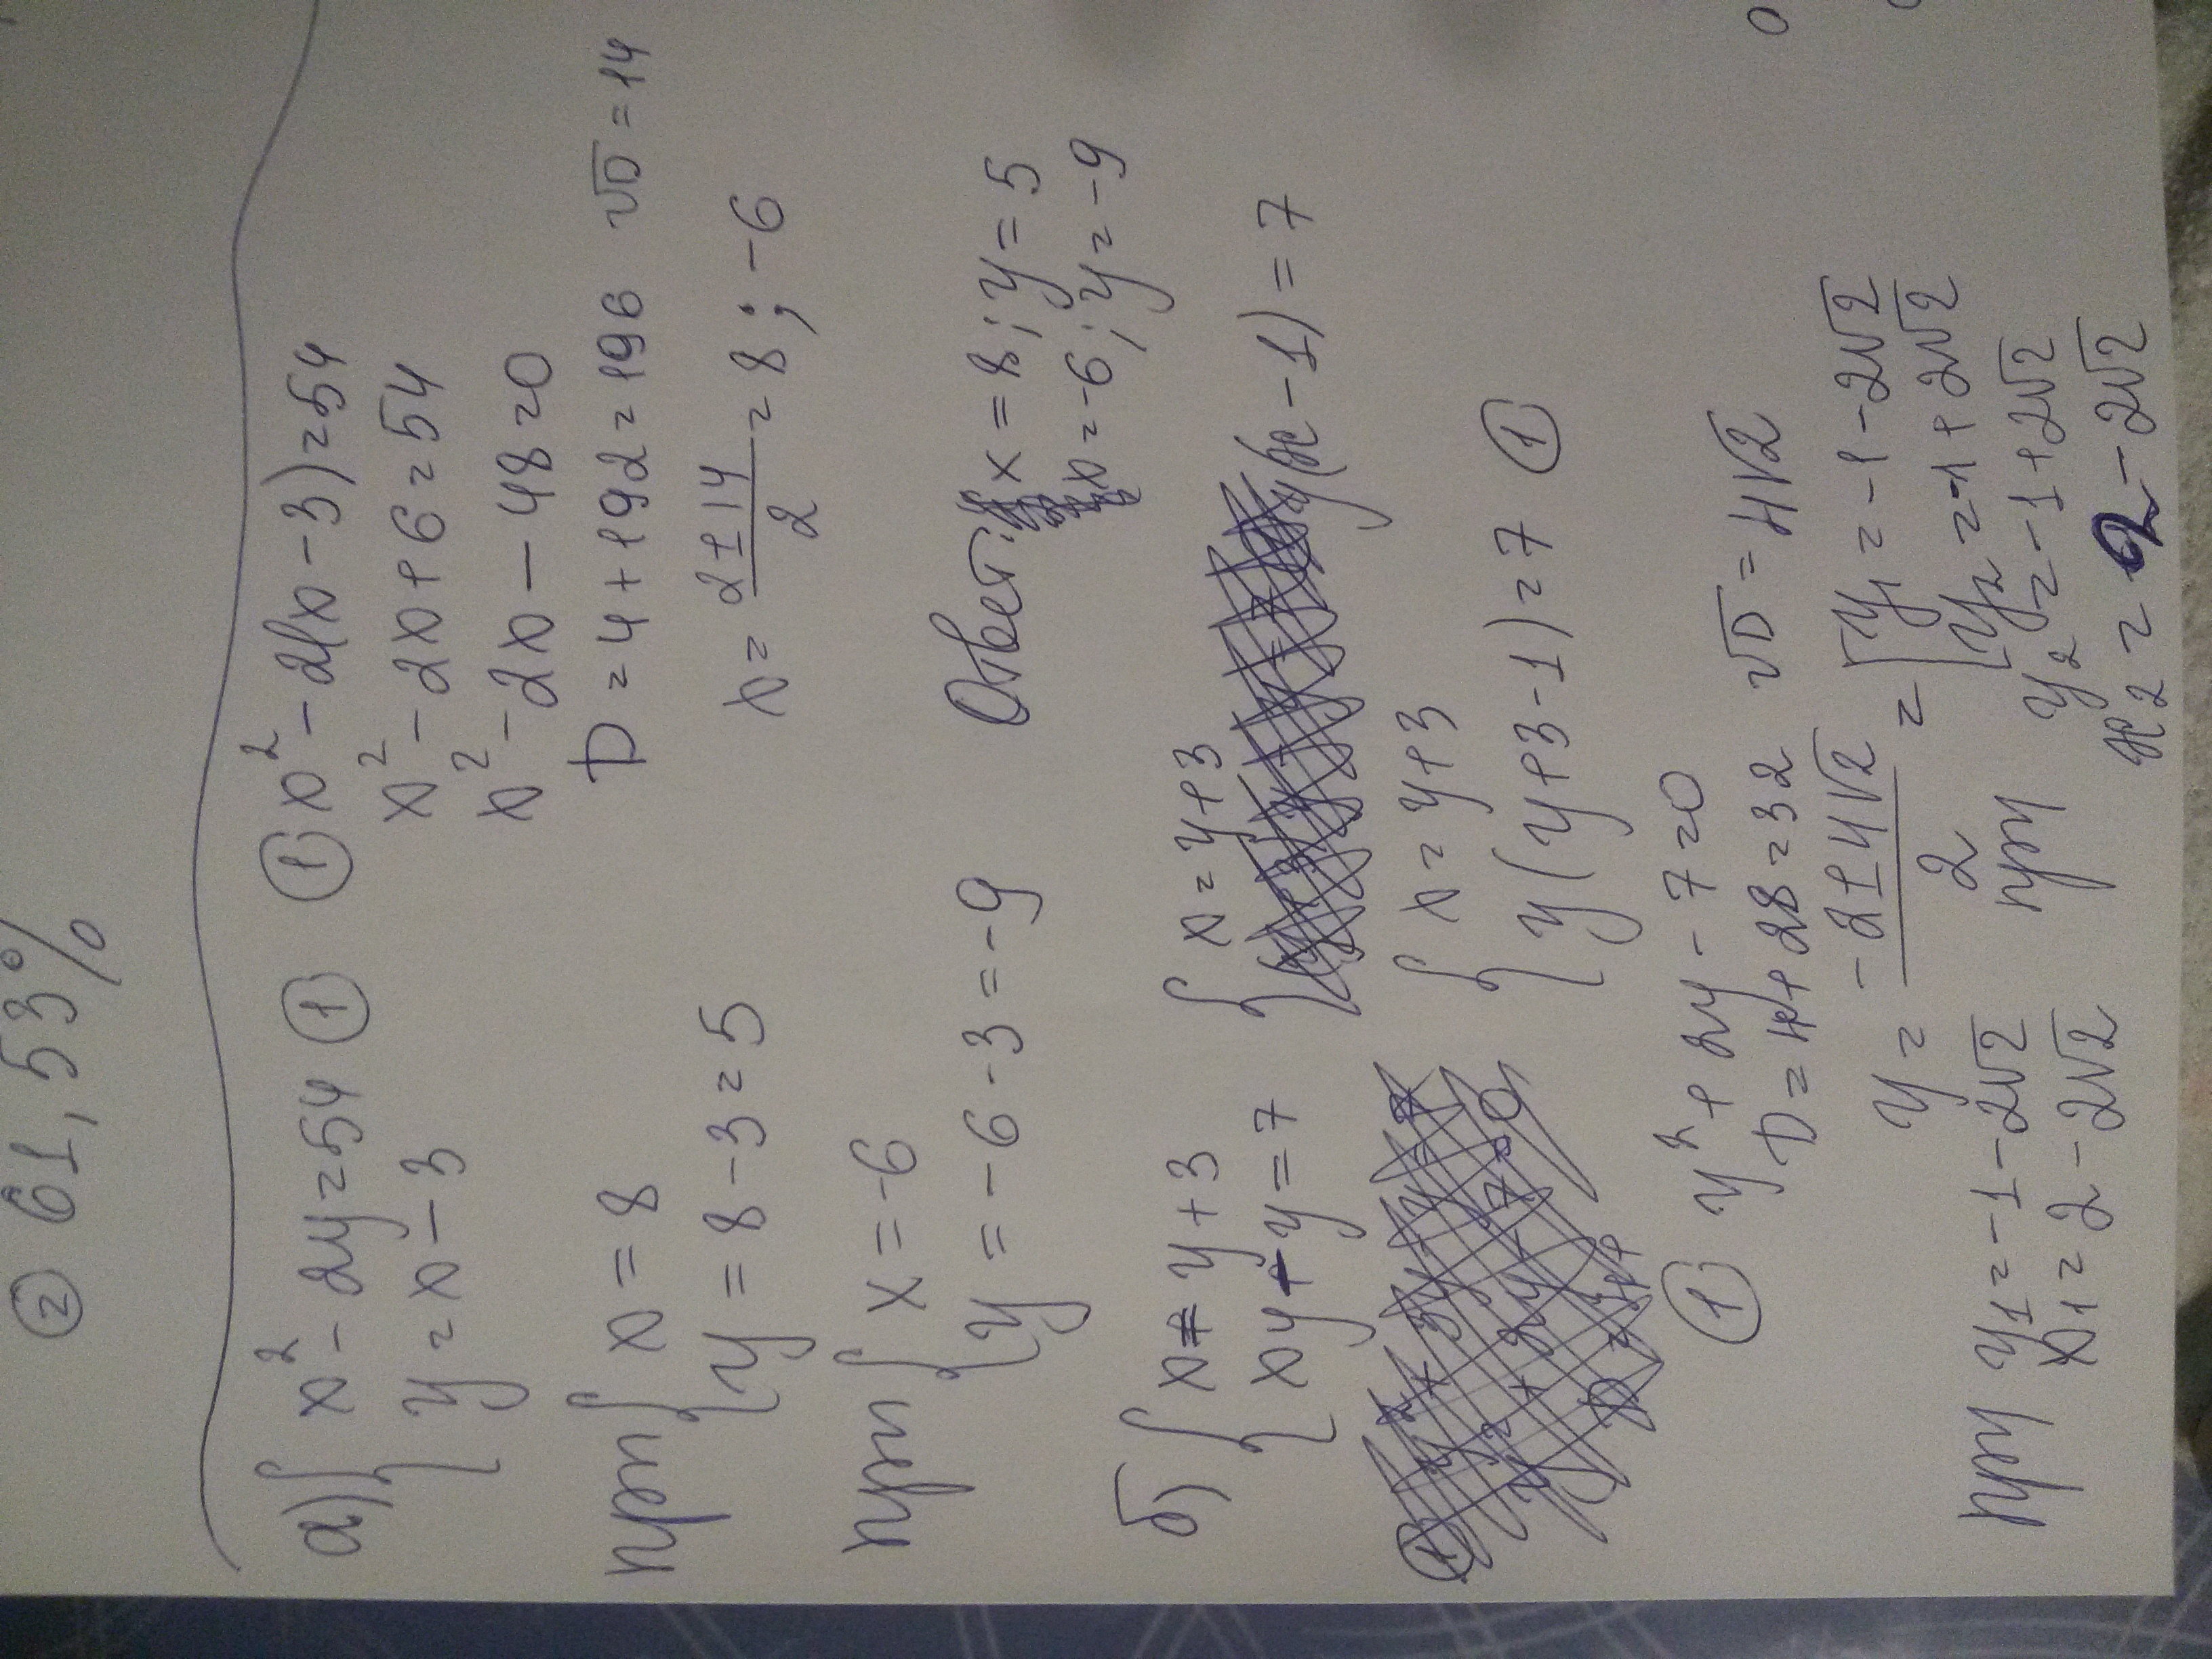 ② 61,53%
а) { x² - 2y = 54 ①
y = x - 3
① x² - 2(x - 3) = 54
x² - 2x + 6 = 54
x² - 2x - 48 = 0
D = 4 + 192 = 196 √D = 14
x = (2 ± 14)/2 = 8 ; -6
при { x = 8
y = 8 - 3 = 5
при { x = -6
y = -6 - 3 = -9
Ответ: x = 8 ; y = 5
x = -6 ; y = -9
б) { x = y + 3
xy - y = 7
{ x = y + 3
y(x - 1) = 7
{ x = y + 3
y(y + 3 - 1) = 7 ①
① y² + 2y - 7 = 0
D = 4 + 28 = 32 √D = 4√2
y = (-2 ± 4√2)/2 = [ y₁ = -1 - 2√2
y₂ = -1 + 2√2
при y₁ = -1 - 2√2
x₁ = 2 - 2√2
при y₂ = -1 + 2√2
x₂ = 2 - 2√2